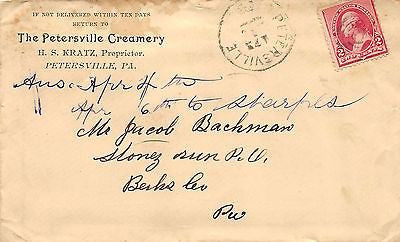 IF NOT DELIVERED WITHIN TEN DAYS
RETURN TO
The Petersville Creamery
H. S. KRATZ, Proprietor.
PETERSVILLE, PA.
PETERSVILLE
Ans. Apr
Apr 6th to Sharples
Mr Jacob Bachman
Stonez run P.O.
Berks Co
Pa